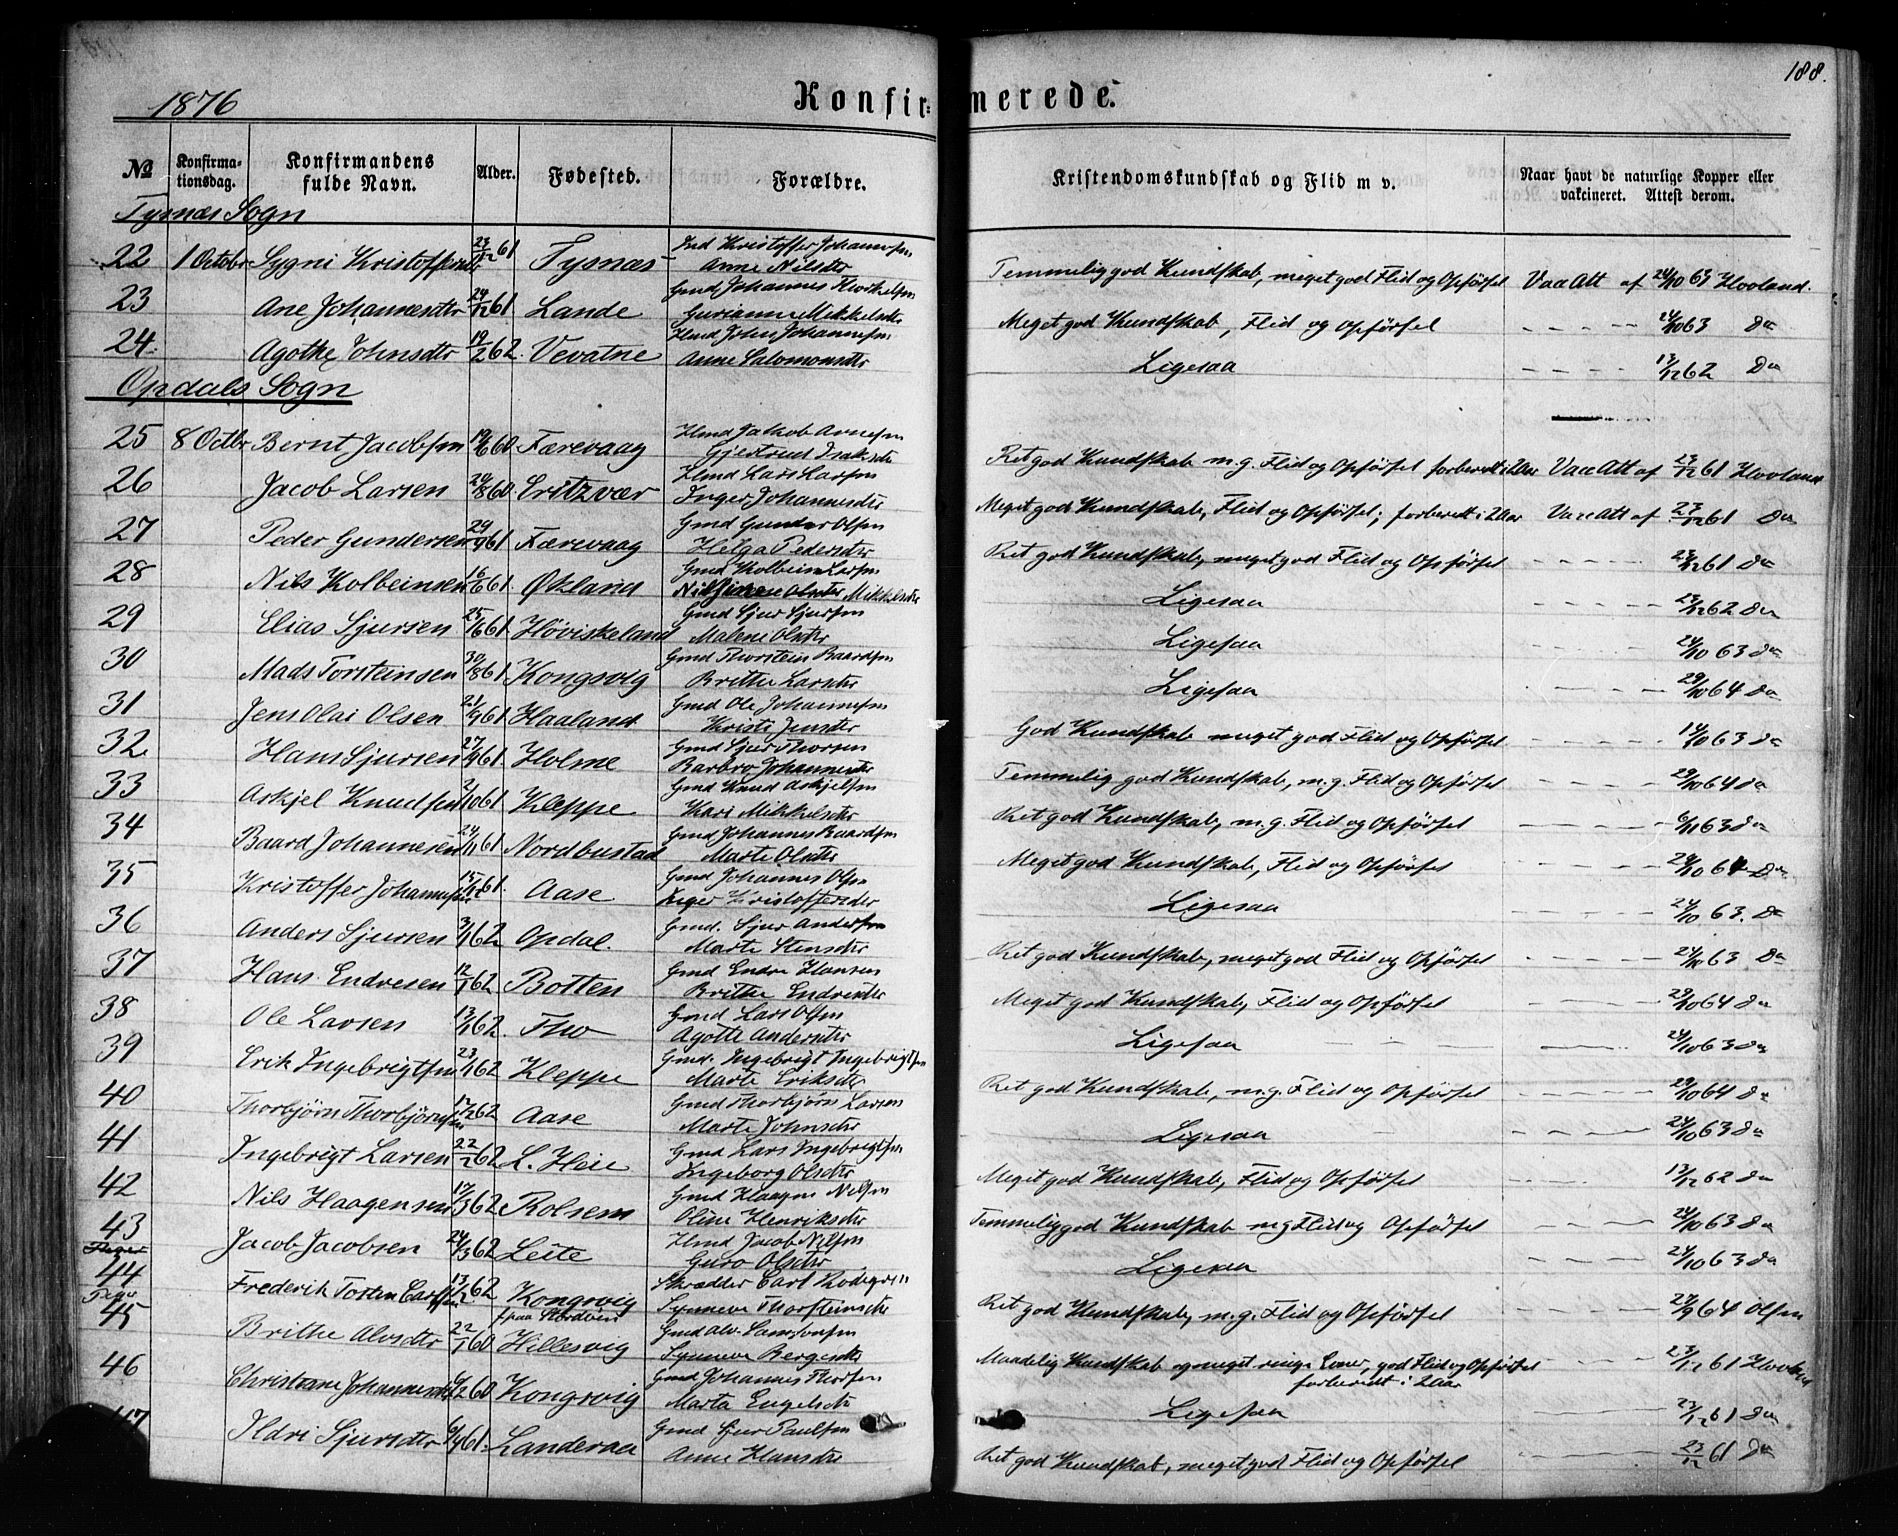 188.
1876
Konfirmerede.
No
Konfirmationsdag.
Konfirmandens fulde Navn.
Alder.
Fødested.
Forældre.
Kristendomskundskab og Flid m v.
Naar havt de naturlige Kopper eller vakcineret. Attest derom.
Tysnæs Sogn
22 1 Octobr Sygni Kristoffersdtr 23/12 61 Tysnæs Ind Kristoffer Johannesen Anne Nilsdtr Temmelig god Kundskab, meget god Flid og Opførsel Vac Att af 24/10 63 Hovland.
23 Ane Johannesdtr 24/12 61 Lande Gmd Johannes Thorkelsen Gurianne Mikkelsdtr Meget god Kundskab, Flid og Opførsel 24/10 63 Do
24 Agothe Johnsdtr 19/2 62. Vevatne Hmd John Johannesen Anne Salomonsdtr Ligesaa 13/12 62 Do
Opdals Sogn
25 8 Octbr Bernt Jacobsen 19/6 60 Færevaag Hmd Jakob Arnesen Gjertrud Isaksdtr Ret god Kundskab m.g. Flid og Opførsel forberedt i 2 Aar Vac Att af 23/12 61 Hovland
26 Jacob Larsen 20/8 60. Eritzvær Hmd Lars Larsen Inger Johannesdtr Meget god Kundskab, Flid og Opførsel; forberedt i 2 Aar Vac Att af 23/12 61 Do
27 Peder Gundersen 29/9 61 Færevaag Gmd Gunder Olsen Helga Pedersdtr Ret god Kundskab, meget god Flid og Opførsel 23/12 61 Do
28 Nils Kolbeinsen 16/6 61. Økland Gmd Kolbein Mikkelsdtr Ligesaa 23/12 62 Do
29 Elias Sjursen 25/6 61. Høviskeland Gmd Sjur Sjursen Malene Olsdtr Ligesaa 24/10 63 Do
30 Mads Torsteinsen 30/8 61 Kongsvig Gmd Thorstein Baardsen Brithe Larsdtr Ligesaa 29/10 64 Do
31 Jens Olai Olsen 21/9 61 Haaland Gmd Ole Johannesen Kristi Jensdtr God Kundskab meget god Flid og Opførsel 14/10 63 Do
32 Hans Sjursen 27/9 61 Holme Gmd Sjur Thorsen Barbro Johannesdtr Temmelig god Kundskab, m.g. Flid og Opførsel 29/10 64 Do
33 Askjel Knudsen 2/10 61 Kleppe Gmd Knud Askjelsen Kari Mikkelsdtr Ret god Kundskab, m.g. Flid og Opførsel 6/11 63 Do
34 Baard Johannesen 24/11 61 Nordbustad Gmd Johannes Baardsen Marte Olsdtr Meget god Kundskab, Flid og Opførsel 29/10 64 Do
35 Kristoffer Johannesen 15/12 61. Aase Gmd Johannes Olsen Inger Kristoffersdtr Ligesaa 24/10 63. Do
36 Anders Sjursen 3/1 62 Opdal. Gmd. Sjur Andersen Marte Stensdtr Ret god Kundskab, meget god Flid og Opførsel 24/10 63 Do
37 Hans Endresen 12/1 62 Botten Gmd Endre Hansen Brithe Endresdtr Meget god Kundskab, Flid og Opførsel 29/10 64 Do
38 Ole Larsen 13/1 62. Tho Gmd Lars Olsen Agotte Andersdtr Ligesaa 24/10 63 Do
39 Erik Ingebrigtsen 23/1 62 Kleppe Gmd. Ingebrigt Ingebrigtsen Marte Eriksdtr Ret god Kundskab, m.g. Flid og Opførsel 29/10 64 Do
40 Thorbjørn Thorbjørnsen 17/2 62 Aase Gmd Thorbjørn Larsen Marte Johnsdtr Ligesaa 24/10 63 Do
41 Ingebrigt Larsen 22/2 62 L. Heie Gmd Lars Ingebrigtsen Ingeborg Olsdtr Meget god Kundskab, Flid og Opførsel 13/12 62 Do
42 Nils Haagensen 17/3 62 Rolsem Gmd Haagen Nilsen Oline Henriksdtr Temmelig god Kundskab m g Flid og Opførsel 24/10 63 Do
43 Jacob Jacobsen 24/3 62 Leite Hmd Jacob Nilsen Guro Olsdtr Ligesaa 24/10 63 Do
44 Frederik Torsten Carlsen 13/2 62 Kongsvig Skrædder Carl Synneva Thorsteinsdtr Ret god Kundskab, m.g. Flid og Opførsel 27/9 64 Olsen
Piger
45 Brithe Alvsdtr 22/1 60 Hillesvig Gmd Alv Samsonsen Synneva Bergesdtr Maadelig Kundskab og meget ringe Evner, god Flid og Opførsel forberedt i 2 Aar 23/12 61 Hovland
46 Christiane Johannesdtr 9/2 60 Kongsvig Gmd Johannes Thorsen Marta Engelsdtr Ligesaa 23/12 61 Do
47 Ildri Sjursdtr 6/4 61. Landeraa Gmd Sjur Paulsen Anne Hansdtr Ret god Kundskab, meget god Flid og Opførsel 23/12 61 Do